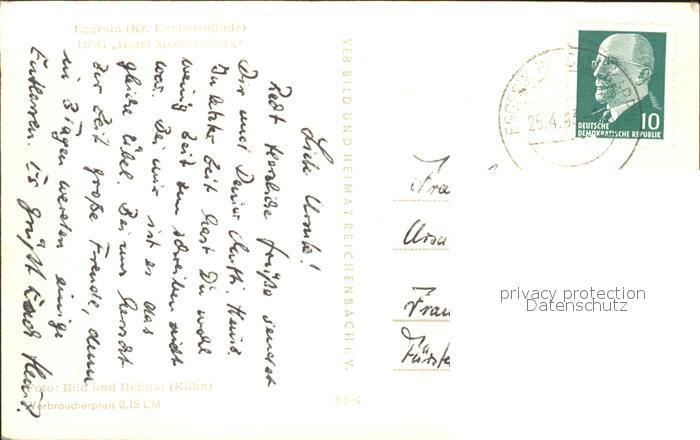 Eggesin (Kr. Ueckermünde)
HOG „Hotel Mecklenburg"
Liebe Ursula!
Recht herzliche Grüße sendet
Dir und Deiner Heinz.
In letzter Zeit hast Du wohl
wenig Zeit zum schreiben nicht
wa. Bei mir ist es das
gleiche Übel. Bei uns herrscht
zur Zeit große Freude, denn
in Tagen werden einige
Entlassen. Es grüßt Euch Heinz.
Foto: Bild und Heimat (Kühn)
Verbraucherpreis 0,15 DM
VEB BILD UND HEIMAT REICHENBACH I. V.
EGGESIN
25.4.6
10
DEUTSCHE
DEMOKRATISCHE REPUBLIK
Fra
Ursu
Fran
Fürste
privacy protection
Datenschutz